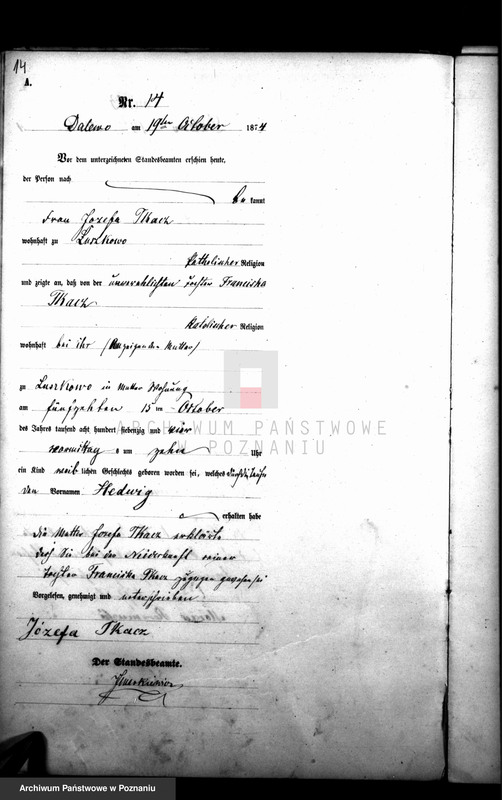 14
A.
Nr. 14
Dalewo am 19ten October 1874
Vor dem unterzeichneten Standesbeamten erschien heute,
der Person nach
be kannt
Frau Jozefa Tkacz
wohnhaft zu Luszkowo
katholischer Religion
und zeigte an, daß von der unverehlichten Tochter Franciska
Tkacz
katolischer Religion
wohnhaft bei ihr (Anzeigenden Mutter)
zu Luszkowo in Mutter Wohnung
am fünfzehten 15 ten October
des Jahres tausend acht hundert siebenzig und vier
vormittag um zehn Uhr
ein Kind weib lichen Geschlechts geboren worden sei, welches
den Vornamen Hedwig
erhalten habe
die Mutter Jozefa Tkacz erklärte
daß Sie bei der Niederkunft seiner
Tochter Franciska Tkacz zugegen gewesen sei
Vorgelesen, genehmigt und unterschrieben
Józefa Tkacz
Der Standesbeamte.
ARCHIWUM PAŃSTWOWE
W POZNANIU
Archiwum Państwowe w Poznaniu